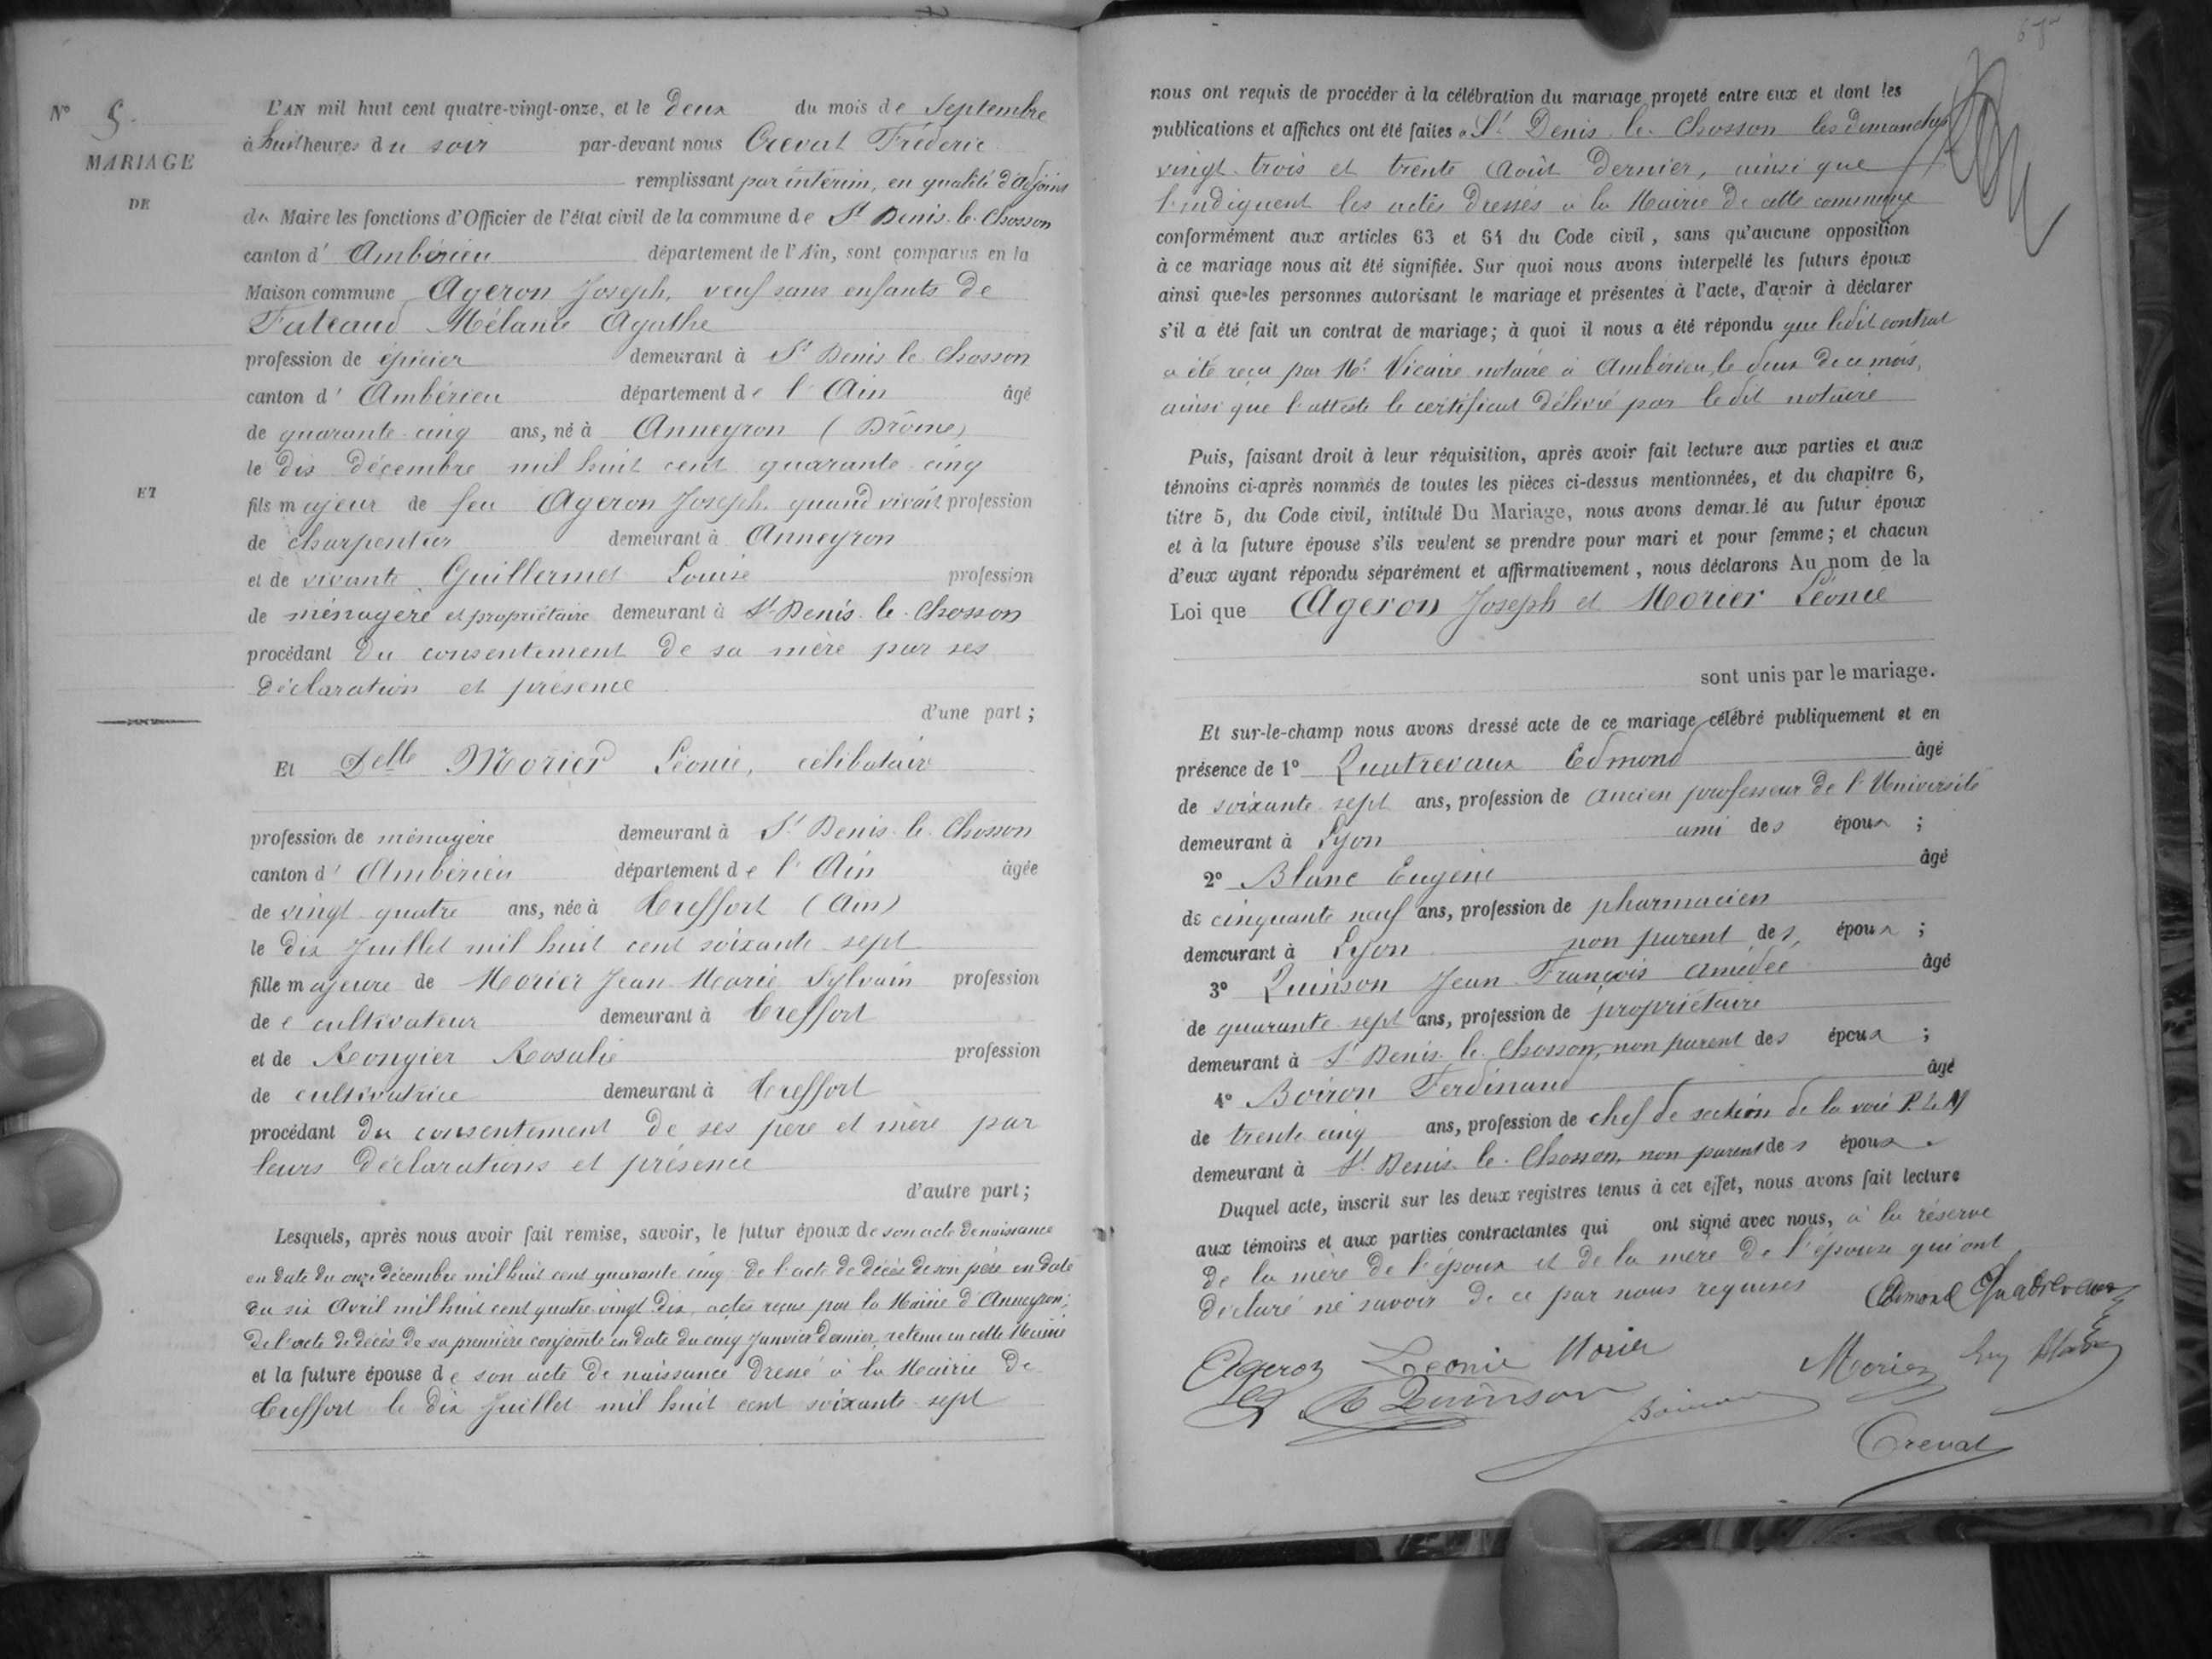 N° 5.
MARIAGE
DE
ET
L'AN mil huit cent quatre-vingt-onze, et le deux du mois de Septembre
à huit heures du soir par-devant nous Creval Fréderic
remplissant par intérim, en qualité d'adjoint
du Maire les fonctions d'Officier de l'état civil de la commune de St Denis-le-Chosson
canton d'Ambérieu département de l'Ain, sont comparus en la
Maison commune Ageron Joseph, veuf sans enfants de
Mélanie Agathe
profession de épicier demeurant à St Denis le Chosson
canton d'Ambérieu département de l'Ain âgé
de quarante-cinq ans, né à Anneyron (Drôme)
le dix décembre mil huit cent quarante-cinq
fils majeur de feu Ageron Joseph, quand vivait profession
de charpentier demeurant à Anneyron
et de vivante Guillermet Louise profession
de ménagère et propriétaire demeurant à St Denis-le-Chosson
procédant du consentement de sa mère par ses
déclaration et présence
d'une part ;
Et Delle Morier Léonie, célibataire
profession de ménagère demeurant à St Denis-le-Chosson
canton d'Ambérieu département de l'Ain âgée
de vingt-quatre ans, née à Treffort (Ain)
le dix Juillet mil huit cent soixante-sept
fille majeure de Morier Jean-Marie Sylvain profession
de cultivateur demeurant à Treffort
et de Rongier Rosalie profession
de cultivatrice demeurant à Treffort
procédant du consentement de ses père et mère par
leurs déclarations et présence
d'autre part ;
Lesquels, après nous avoir fait remise, savoir, le futur époux de son acte de naissance
en date du onze décembre mil huit cent quarante cinq de l'acte de décès de son père en date
du six Avril mil huit cent quatre-vingt-dix, actes reçus par la Mairie d'Anneyron ;
de l'acte de décès de sa première conjointe en date du cinq Janvier dernier, retenu en cette Mairie
et la future épouse de son acte de naissance dressé à la Mairie de
Treffort le dix Juillet mil huit cent soixante-sept
nous ont requis de procéder à la célébration du mariage projeté entre eux et dont les
publications et affiches ont été faites à St Denis-le-Chosson les dimanches
vingt-trois et trente Août dernier, ainsi que
l'indiquent les actes dressés à la Mairie de cette commune
conformément aux articles 63 et 64 du Code civil, sans qu'aucune opposition
à ce mariage nous ait été signifiée. Sur quoi nous avons interpellé les futurs époux
ainsi que les personnes autorisant le mariage et présentes à l'acte, d'avoir à déclarer
s'il a été fait un contrat de mariage; à quoi il nous a été répondu que ledit contrat
a été reçu par Me Vicaire notaire à Ambérieu, le deux de ce mois,
ainsi que l'atteste le certificat délivré par ledit notaire
Puis, faisant droit à leur réquisition, après avoir fait lecture aux parties et aux
témoins ci-après nommés de toutes les pièces ci-dessus mentionnées, et du chapitre 6,
titre 5, du Code civil, intitulé Du Mariage, nous avons demandé au futur époux
et à la future épouse s'ils veulent se prendre pour mari et pour femme ; et chacun
d'eux ayant répondu séparément et affirmativement, nous déclarons Au nom de la
Loi que Ageron Joseph et Morier Léonie
sont unis par le mariage.
Et sur-le-champ nous avons dressé acte de ce mariage célébré publiquement et en
présence de 1° Quatrevaux Edmond âgé
de soixante-sept ans, profession de ancien professeur de l'Université
demeurant à Lyon ami des époux ;
2° Blanc Eugène âgé
de cinquante neuf ans, profession de pharmacien
demeurant à Lyon non parent des époux ;
3° Quinson Jean-François Amédée âgé
de quarante-sept ans, profession de propriétaire
demeurant à St Denis-le-Chosson, non parent des époux ;
4° Boiron Ferdinand âgé
de trente-cinq ans, profession de chef de section de la voie P.L.M
demeurant à St Denis-le-Chosson, non parent des époux.
Duquel acte, inscrit sur les deux registres tenus à cet effet, nous avons fait lecture
aux témoins et aux parties contractantes qui ont signé avec nous, à la réserve
de la mère de l'époux et de la mère de l'épouse qui ont
déclaré ne savoir de ce par nous requises Edmond Quatrevaux
Ageron Léonie Morier Morier Eug Blanc
A Quinson Boiron
Creval